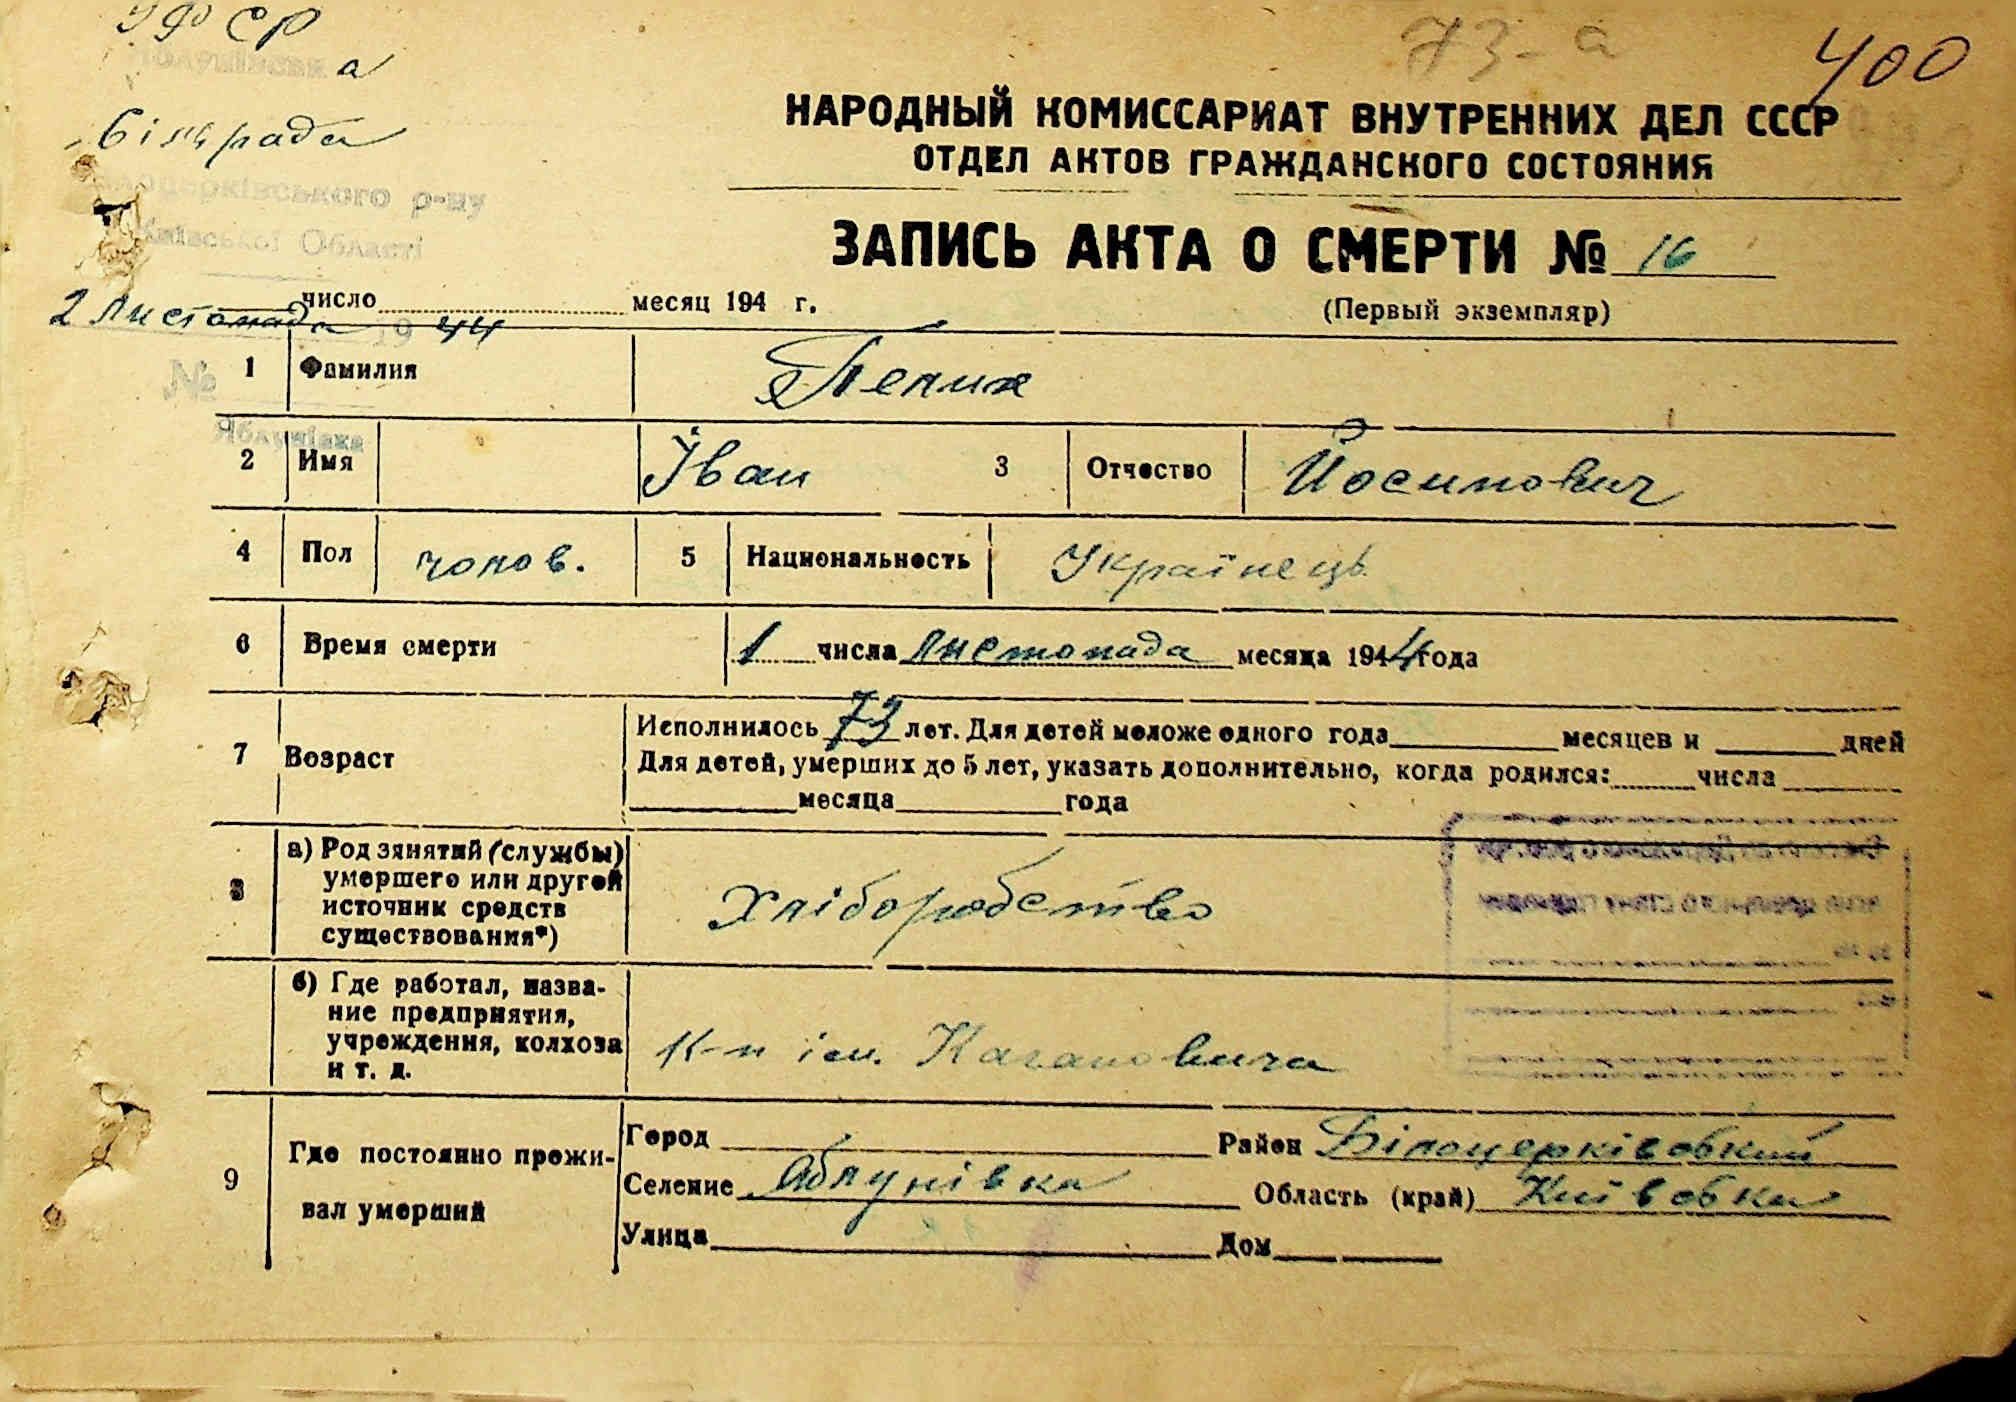 УССР
73-а
400
Яблунівська
сільрада
Білоцерківського р-ну
Київської Області
НАРОДНЫЙ КОМИССАРИАТ ВНУТРЕННИХ ДЕЛ СССР
ОТДЕЛ АКТОВ ГРАЖДАНСКОГО СОСТОЯНИЯ
ЗАПИСЬ АКТА О СМЕРТИ № 16
(Первый экземпляр)
число месяц 194 г.
2 листопада 1944
№
Яблунівка
1 Фамилия
2 Имя Іван 3 Отчество Йосипович
4 Пол чолов. 5 Национальность Українець
6 Время смерти 1 числа листопада месяца 1944 года
7 Возраст Исполнилось 73 лет. Для детей моложе одного года месяцев и дней
Для детей, умерших до 5 лет, указать дополнительно, когда родился: числа
месяца года
8 а) Род занятий (службы)
умершего или другой
источник средств
существования*)
Хліборобство
б) Где работал, назва-
ние предприятия,
учреждения, колхоза
и т. д.
К-п ім. Кагановича
9 Где постоянно прожи-
вал умерший
Город Район Білоцерківський
Селение Яблунівка Область (край) Київська
Улица Дом